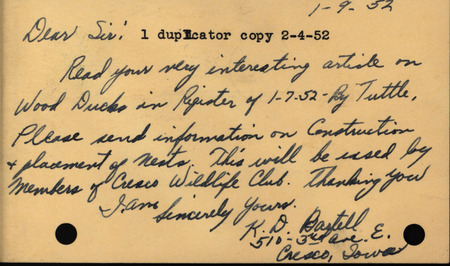 1-9-52
Dear Sir: 1 duplicator copy 2-4-52
Read your very interesting article on
Wood Ducks in Register of 1-7-52-By Tuttle.
Please send information on Construction
+ placement of nests. This will be used by
Members of Cresco Wildlife Club. Thanking you
I am Sincerely Yours.
K. D.
510-3rd Ave. E.
Cresco, Iowa